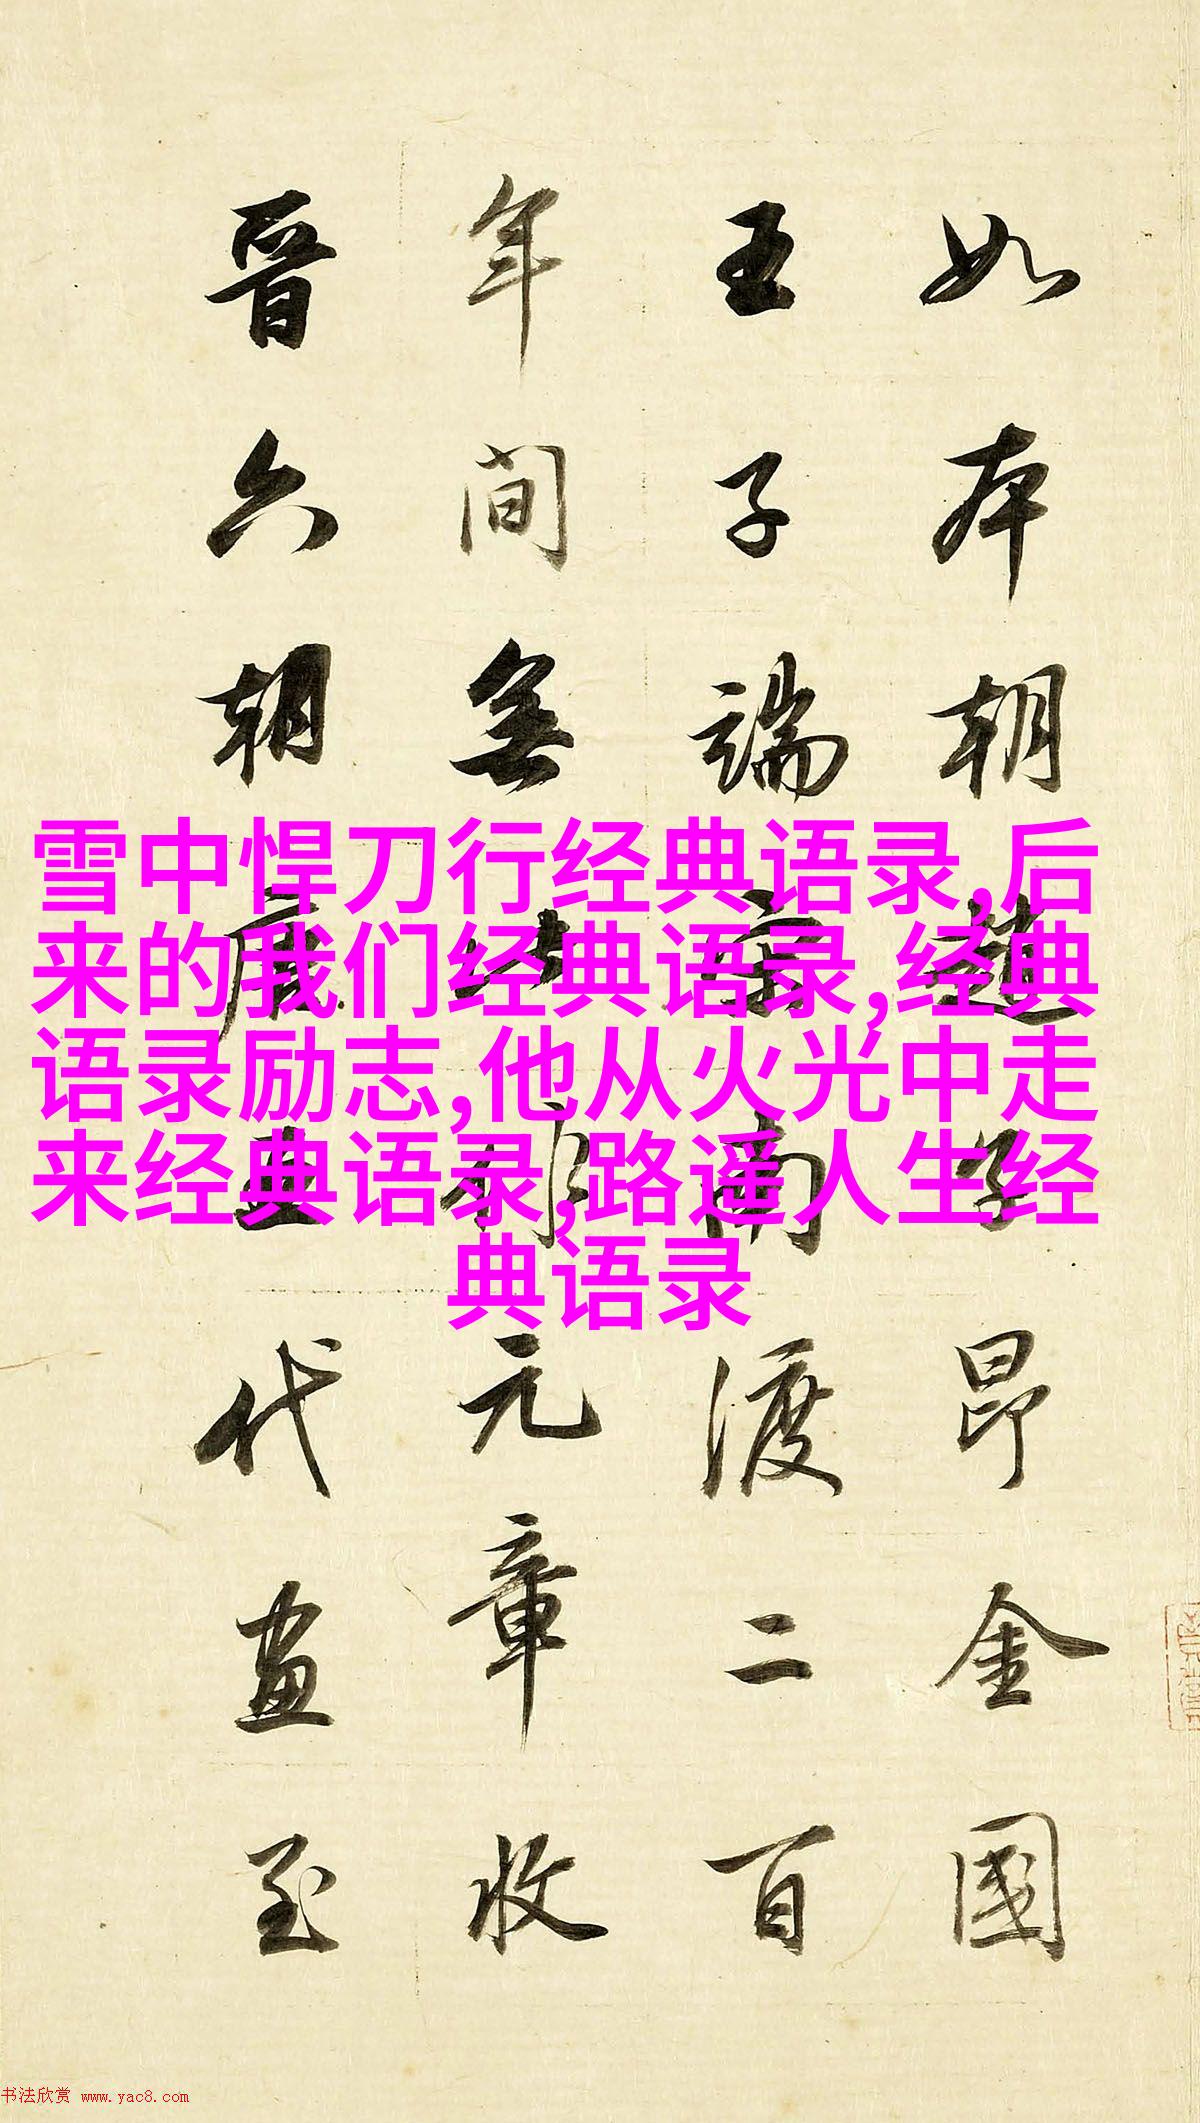 如本朝趙子昂金國
王子端宋南渡二百
年間無此作元章收
晉六朝唐五代畫至
雪中悍刀行经典语录,后
来的我们经典语录,经典
语录励志,他从火光中走
来经典语录,路遥人生经
典语录
书法欣赏 www.yac8.com